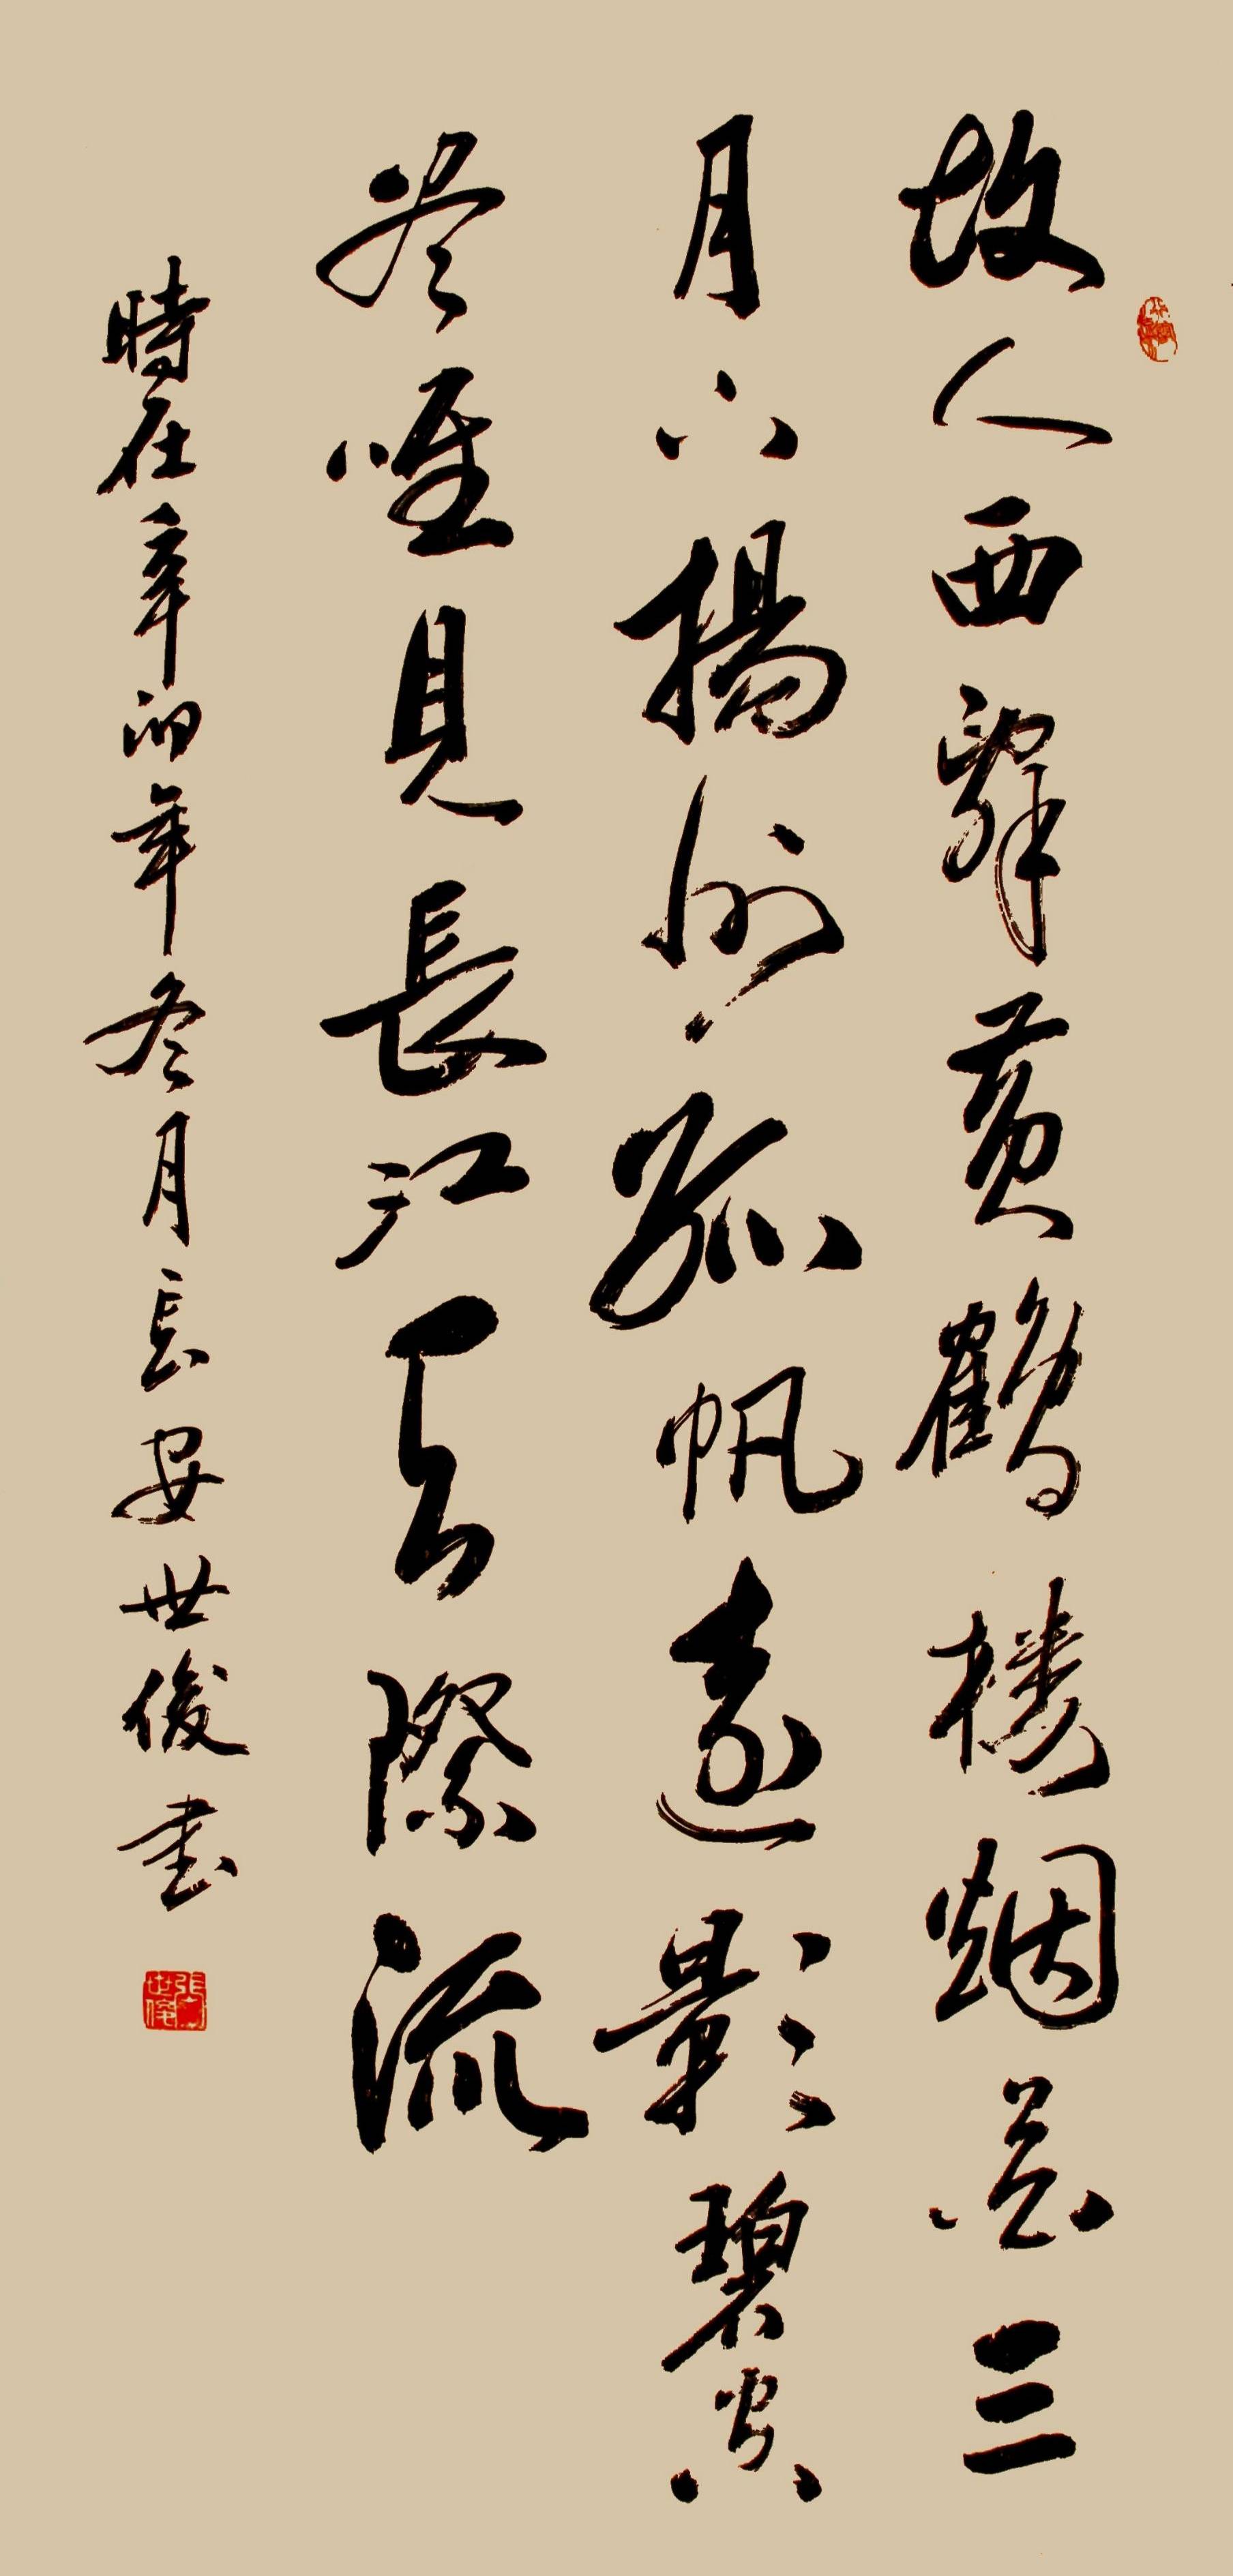 故人西辭黄鶴楼烟花三
月下揚州孤帆遠影碧空
尽唯見長江天際流
時在辛卯年冬月長安世俊書